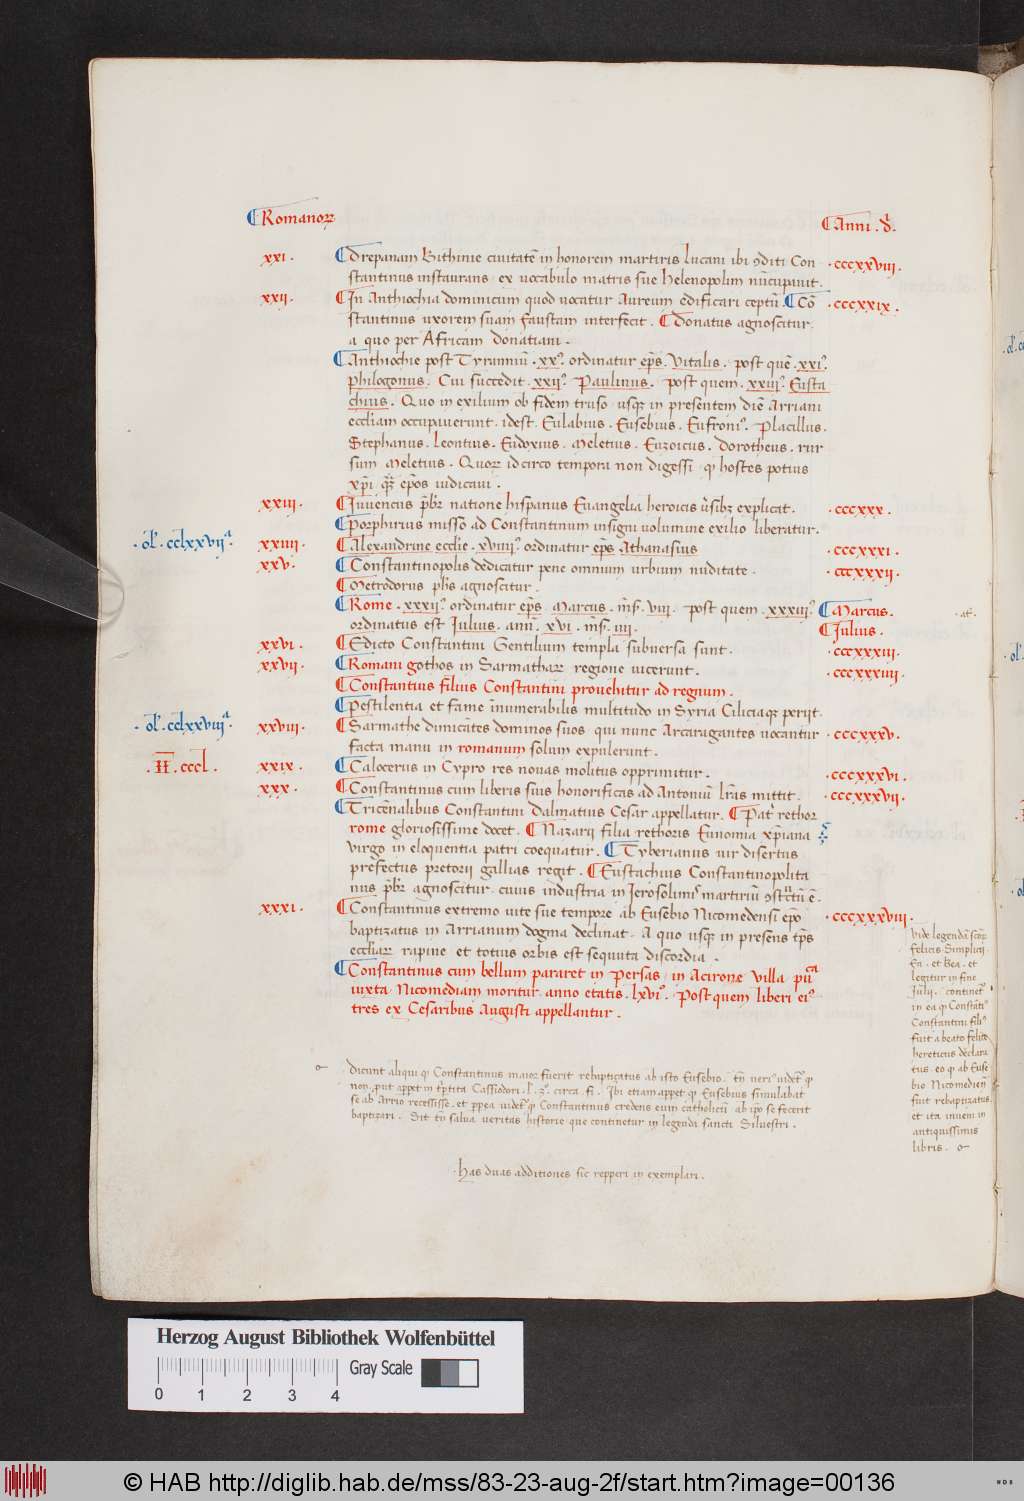 ¶ Romanoꝝ
¶ Anni . d̄.
xxi .
¶ Drepanam Bithinie ciuitatē in honorem martiris Luciani ibi ꝯditi Con
. cccxxviii .
stantinus instaurans . ex uocabulo matris sue Helenopolim nūcupiuit .
xxii .
¶ In Anthiochia dominicum quod uocatur Aureum edificari ceptū . ¶ Cō
. cccxxix .
stantinus uxorem suam faustam interfecit . ¶ Donatus agnoscitur .
a quo per Africam donatiani .
¶ Anthiochie post Tyrannū . xx.º ordinatur ep̄s . Vitalis . post quē . xxi.º
philogonus . Cui succedit . xxii.º Paulinus . post quem . xxiii.º Eusta
chius . Quo in exilium ob fidem truso . usqꝫ in presentem diē Arriani
eccl̄iam occupiuerunt . idest . Eulabius . Eusebius . Eufroniꝰ . Placillus .
Stephanus . Leontius . Eudoxius . Meletius . Euzoicus . Dorotheus . rur
sum Meletius . Quoꝝ idcirco tempora non digessi . ꝙ hostes potius
xp̄i . qꝫ ep̄os iudicaui .
xxiii .
¶ Iuuencus pr̄br natione hispanus Euangelia heroicis u̇sibꝫ explicat .
. cccxxx .
¶ Porphirius misso ad Constantinum insigni uolumine exilio liberatur .
. ol̄ . cclxxvii.ª
xxiiii .
¶ Alexandrine eccl̄ie . xviiii.º ordinatur ep̄s Athanasius
. cccxxxi .
xxv .
¶ Constantinopolis dedicatur pene omnium urbium nuditate .
. cccxxxii .
¶ Metrodorus ph̄s agnoscitur .
¶ Rome . xxxii.º ordinatur ep̄s . Marcus . m̄s . viii . post quem . xxxiii.º
¶ Marcus .
ordinatus est Iulius . anni . xvi . m̄s . iiii .
¶ Iulius .
xxvi .
¶ Edicto Constantini Gentilium templa subuersa sunt .
. cccxxxiii .
xxvii .
¶ Romani gothos in Sarmathaꝝ regione uicerunt .
. cccxxxiiii .
¶ Constantius filius Constantini prouehitur ad regnum .
¶ Pestilentia et fame innumerabilis multitudo in Syria Ciliciaqꝫ perijt .
. ol̄ . cclxxviii.ª
xxviii .
¶ Sarmathe dimicātes dominos suos qui nunc Arcaragantes uocantur
. cccxxxv .
facta manu in romanum solum expulerunt .
. II̅ . cccl .
xxix .
¶ Calocerus in Cypro res nouas molitus opprimitur .
. cccxxxvi .
xxx .
¶ Constantinus cum liberis suis honorificas ad Antoniū l̄ras mittit .
. cccxxxvii .
¶ Tricenalibus Constantini Dalmatius Cesar appellatur . ¶ Pat̄ rethor
rome gloriosissime docet . ¶ Nazarij filia rethoris Eunomia xp̄iana
virgo in eloquentia patri coequatur . ¶ Tyberianus uir disertus
prefectus pretorij gallias regit . ¶ Eustachius Constantinopolita
nus pr̄br agnoscitur . cuius industria in Ierosolimiꝭ martiriū ꝯst̄ctū ē .
xxxi .
¶ Constantinus extremo uite sue tempore ab Eusebio Nicomedensi ep̄o
. cccxxxviii .
baptizatus in Arrianum dogma declinat . A quo usqꝫ in presens tp̄s
eccl̄iaꝝ rapine et totius orbis est sequuta discordia .
¶ Constantinus cum bellum pararet in Persas . in Acirone villa pu̅ca
iuxta Nicomediam moritur . anno etatis . lxvi.º . Post quem liberi eiꝰ
tres ex Cesaribus Augusti appellantur .
vide legendā sc̄oꝝ
felicis Simplicij
. et Bea . et
legitur in fine
Iulij . continetꝰ
in ea ꝙ Constātiꝰ
Constantini filiꝰ
fuit a beato felice
hereticus declara
tus . eo ꝙ ab Euse
bio Nicomedieñ
fuit rebaptizatus .
et ita inueni in
antiquissimis
libris .
Dicunt aliqui ꝙ Constantinus maior fuerit rebaptizatus ab isto Eusebio . tn̄ veriꝰ videtꝰ ꝙ
non . put appet in tp̄tita Cassiodori . l . 3.º circa . fi . Ibi etiam appet ꝙ Eusebius simulabat
se ab Arrio recessisse . et ppea videtꝰ ꝙ Constantinus credens eum catholicū ab ip̄o se fecerit
baptizari . Sit tn̄ salua veritas historie que continetur in legenda sancti Siluestri .
. Has duas additiones sic repperi in exemplari .
Herzog August Bibliothek Wolfenbüttel
Gray Scale
0 1 2 3 4
© HAB http://diglib.hab.de/mss/83-23-aug-2f/start.htm?image=00136